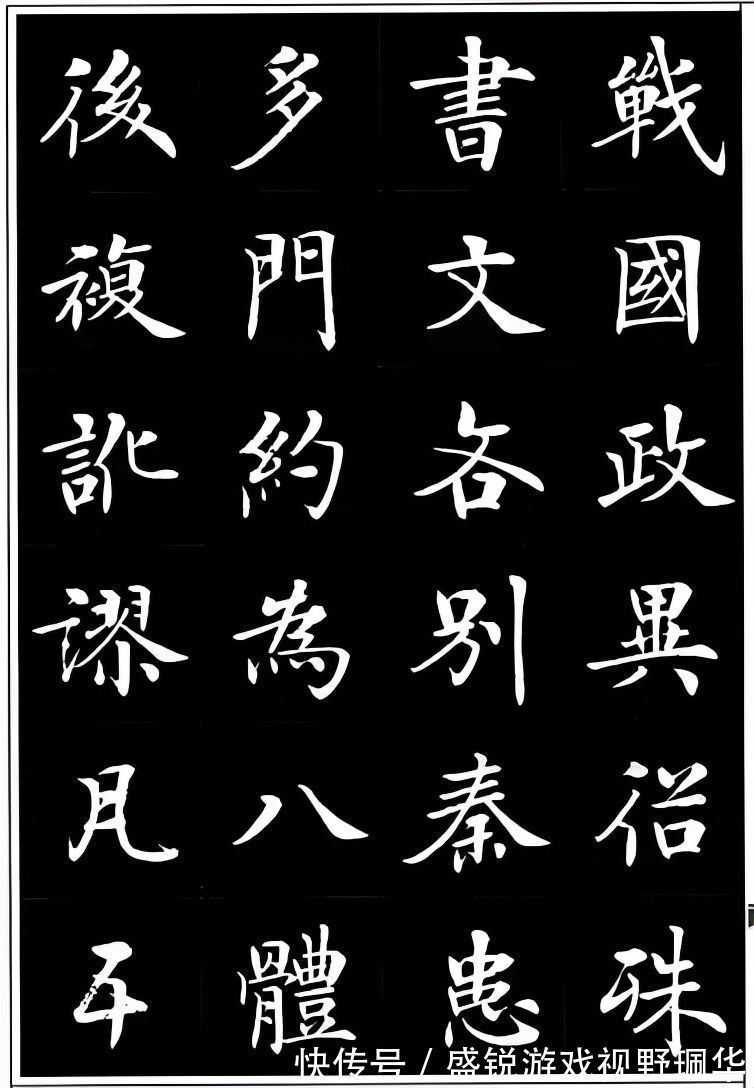 戰國政異俗殊
書文各別秦患
多門約為八體
後複訛謬凡五
快传号 / 盛锐游戏视野珮华